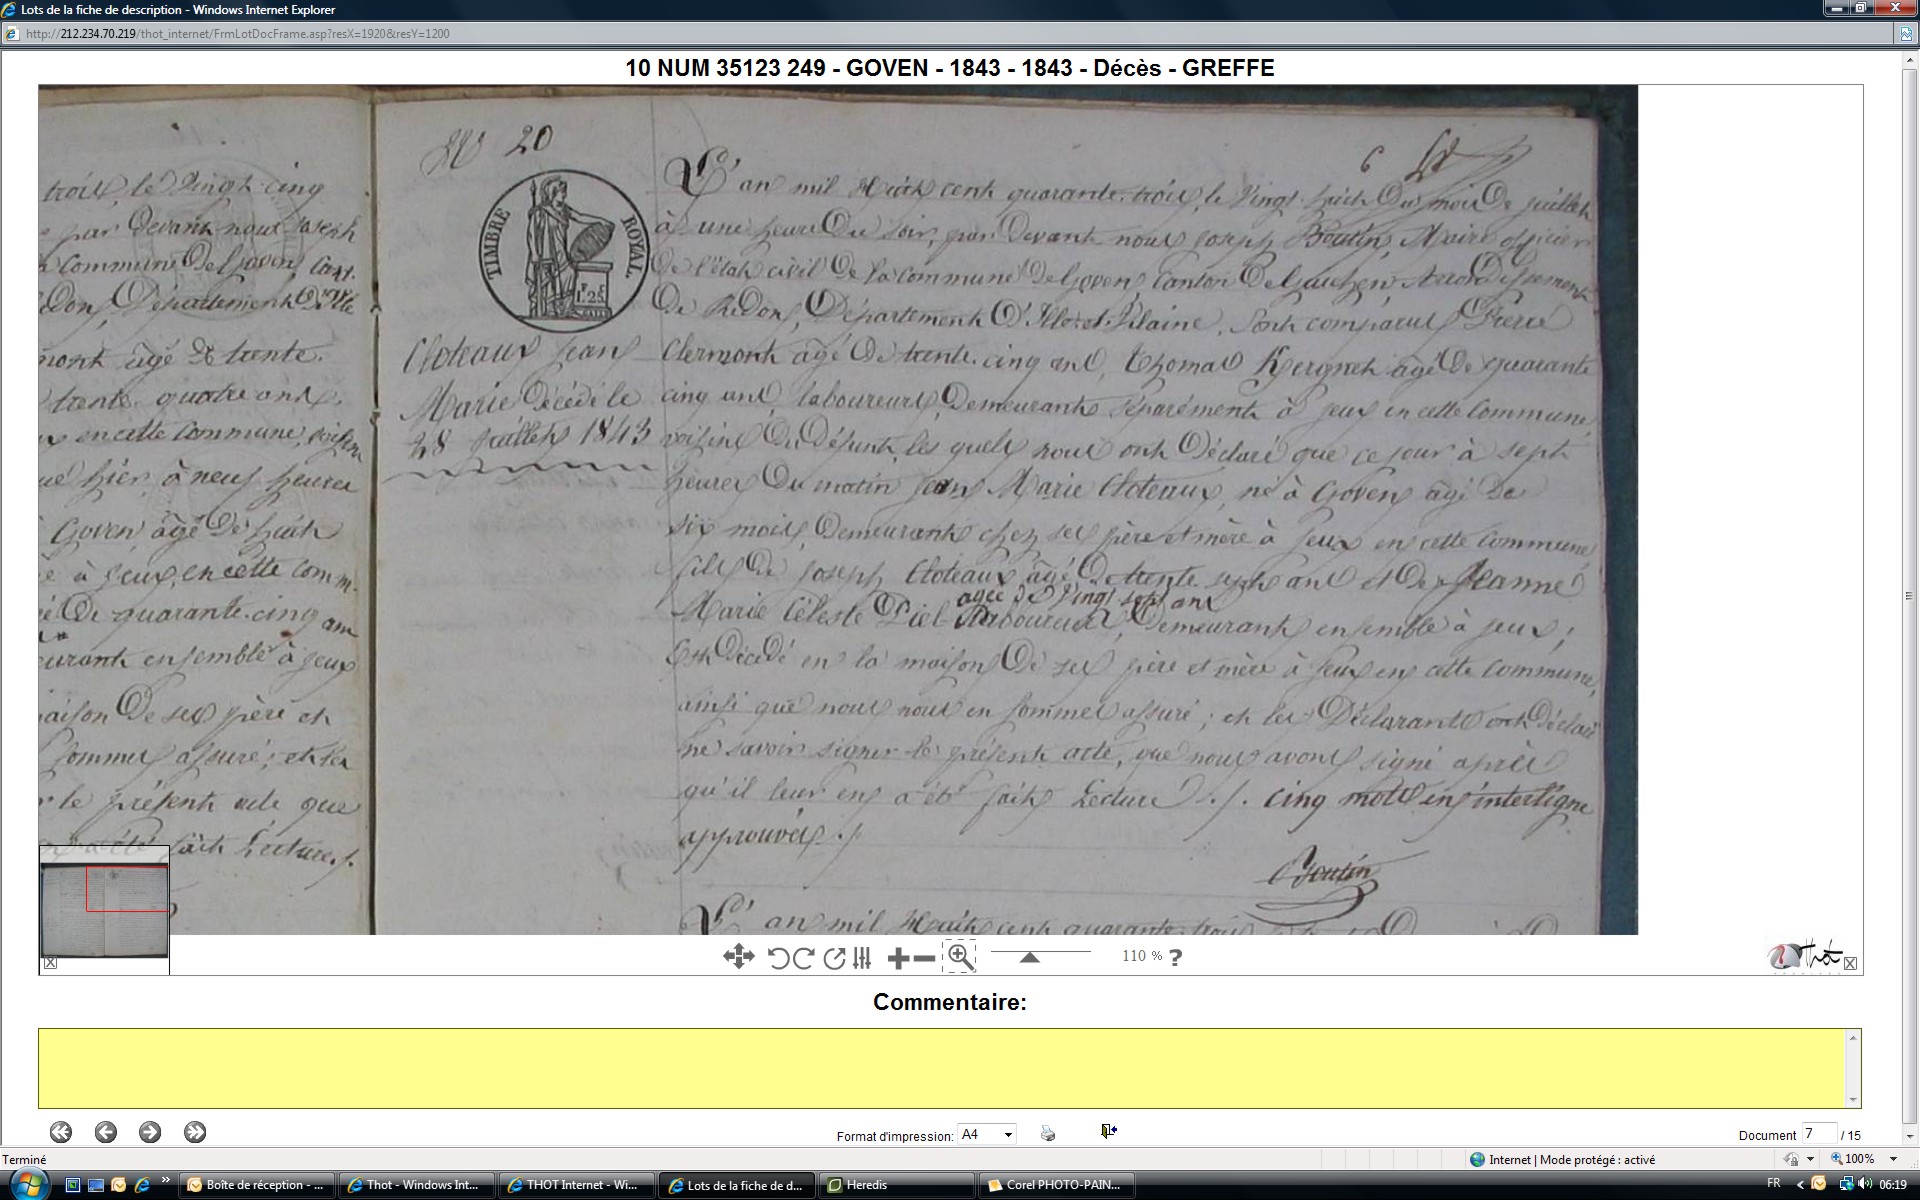 Lots de la fiche de description - Windows Internet Explorer
http://212.234.70.219/thot_internet/FrmLotDocFrame.asp?resX=1920&resY=1200
10 NUM 35123 249 - GOVEN - 1843 - 1843 - Décès - GREFFE
trois, le Vingt cinq
par devant nous Joseph
Commune de Goven, Cant.
Redon, Département d'Ille
mont âgé de trente.
trente quatre ans,
en cette commune, voisins
hier, à neuf heures
Goven, âgé de huit
à feux, en cette comm.
de quarante-cinq ans
demeurant ensemble à feux
maison de ses père et
sommes assuré; et les
le présent acte que
a été fait Lecture ./.
N° 20
TIMBRE ROYAL
1F 25C
Cloteaux Jean
Marie décédé le
28 Juillet 1843
6
L'an mil Huit cent quarante-trois, le Vingt huit du mois de juillet
à une heure du soir, par devant nous Joseph Boutin, Maire officier
de l'état civil de la commune de Goven, Canton de Guichen, Arrondissement
de Redon, Département d'Ille-et-Vilaine, sont comparus Pierre
Clermont âgé de trente-cinq ans, Thomas âgé de quarante
cinq ans, laboureurs, Demeurants séparément à feux en cette commune,
voisins du défunt, les quels nous ont déclaré que ce jour à sept
heures du matin Jean Marie Cloteaux, né à Goven âgé de
six mois, demeurant chez ses père et mère à feux en cette commune
fils de Joseph Cloteaux âgé de trente sept ans et de Jeanne
agée de Vingt sept ans
Marie Céleste Piel Laboureurs, Demeurants ensemble à feux;
Est décédé en la maison de ses père et mère à feux en cette commune,
ainsi que nous nous en sommes assuré; et les Déclarants ont déclaré
ne savoir signer le présent acte, que nous avons signé après
qu'il leur en a été fait Lecture ./. cinq mots en interligne
approuvés ./.
Boutin
L'an mil Huit cent quarante trois
110 % ?
Thot
Commentaire:
Format d'impression: A4
Document 7 / 15
Terminé
Internet | Mode protégé : activé
100%
Boîte de réception - ...
Thot - Windows Int...
THOT Internet - Wi...
Lots de la fiche de d...
Heredis
Corel PHOTO-PAIN...
FR
06:19